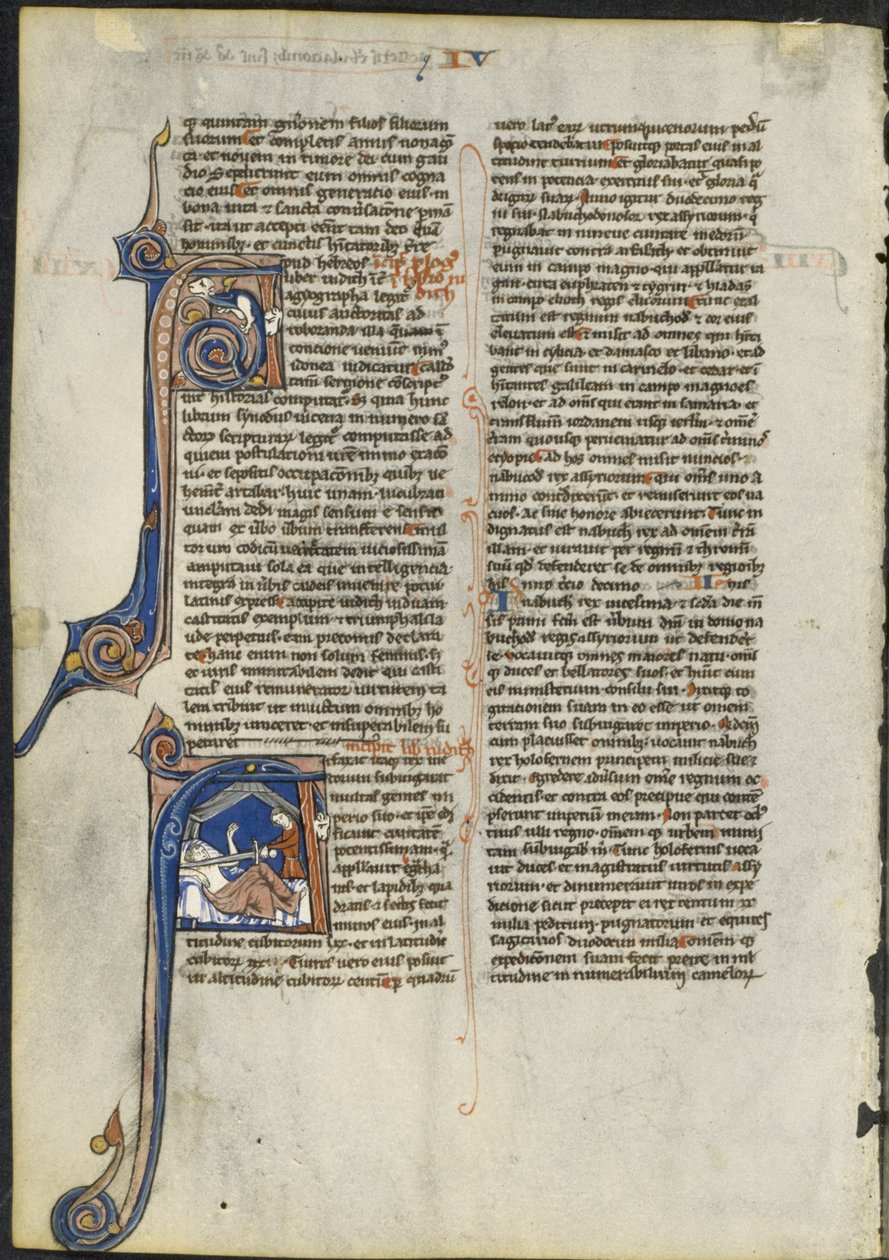 IV
q quintam gn̄onem filios filiorum
suorum Et completis annis nonagī
ta et novem in timore dei cum gau
dio Sepelierunt eum omnis cogna
cio eius et omnis generatio eius in
bona vita & sancta conv̄sacōne p̄man
sit ita ut accepti eēnt tam deo quā
hominibȝ et cunctis hītatoribȝ t̄re
Apud hebreos īcip̄ p̄log
liber iudith īt ī libro iu
agyographa legit᷑ dith
cuius auctoritas ad
roboranda illa que in
contione veniunt min᷑
idonea iudicatur cald̄o
tam̄ sermone cōscript᷑
int̄ historias computat᷑ Sȝ quia hunc
librum synodus nicena in numero sā
ctoꝝ scripturaꝝ legit᷑ computasse ad
quieui postulationi vr̄e immo exacō
ni et sepositis occupacōnibȝ quibȝ ve
hemēt᷑ artabar huic unam lucubrati
unclam dedi magis sensum e sensu
quam ex v̄bo v̄bum transferens Mul
torum codicū varietatem viciosissimā
amputaui sola ea que intelligencia
integra in v̄bis caldeis invenire potui
latinis exp̄ssi accipite iudith viduam
castitatis exemplum & triumphali la
ude perpetuis eam preconiis declara
te hanc enim non solum feminis sȝ
et viris imitabilem dedit qui casti
tatis eius remunerator virtutem ta
lem tribuit ut invictum omnibȝ ho
minibȝ vinceret et insuperabilem su
peraret
incipit lib iudith
Arfaxat itaqȝ rex me
dorum subiugarat
multas gentes im
perio suo et ip̄e edi
ficavit civitatē
potentissimam q̄
appellavit egbtha
nis et lapidibȝ qua
dratis & sectis fecit
muros eius in al
titudine cubitorum lxx et in latitudīe
cubitoꝝ xxx Turres vero eius posuit
in altitudinē cubitoꝝ centū p quadrū
vero lat᷑ eaꝝ utrumqȝ vicenorum pedū
spacio tendebatur posuitqȝ portas eius in al
titudine turrium Et gloriabatur quasi po
tens in potencia exercitus sui et gloria q̄
drigaꝝ suaꝝ Anno igitur duodecimo reg
ni sui Nabuchodonosor rex assyriorum q̄
regnabat in ninive civitate
pugnavit contra arfaxath et obtinuit
eum in campo magno qui appellatur ra
gau circa euphraten & tygrin & hiadas
in campo erioch regis elicorum Tunc exal
tatum est regnum nabuchod᷑ & cor eius
elevatum est & misit ad omnes qui hītа
bant in cylicia et damasco et libano et ad
gentes que sunt in carmelo et cedar et
hītantes galileam in campo magno es
relon et ad oms̄ qui erant in samaria et
trans flum̄ iordanem usqȝ ierl̄m & omnē
t̄ram quo usqȝ perveniatur ad oms̄ t̄minos
etyopie Ad hos omnes misit nuncios
nabucod rex assyriorum qui oms̄ uno a
nimo contdixerunt et remiserunt eos va
cuos Ac sine honore abiecerunt Tunc in
dignatus est nabuch᷑ rex ad omem t̄rā
illam et iuravit per regnū & thronū
suū qd defenderet se de omnibȝ regionibȝ
his nno t̄cio decimo II nis
Anabuch᷑ rex vicesima & secd̄a die m̄
sis primi fctm̄ est v̄bum dn̄i in domo na
buchod regis assyriorum ut defenderet
se Vocavitqȝ omnes maiores natu oms̄
qȝ duces et bellatores suos et hūit cum
eis ministerium consilii sui Dixitqȝ co
gitationem suam in eo esse ut omem
terram suo subiugaret imperio Q dcm̄
cum placuisset omnibȝ vocavit nabuch᷑
rex holofernem principem milicie sue &
dixit Egredere adversum ome᷑ regnum oc
cidentis et contra eos precipue qui contē
pserunt imperiū meum Non parcet ocl̄s
tuus ulli regno omēm qȝ urbem muni
tam subiugabis m̄ Tunc holofernes voca
vit duces et magistratus virtutis assy
riorum et dinumeravit viros in expe
ditione sicut precepit ei rex centum xx
milia peditum pugnatorum et equites
sagitarios duodecim milia Omēm qȝ
expeditōnem suam fecit preire in ml̄
titudine in numerabiliū camelorꝝ